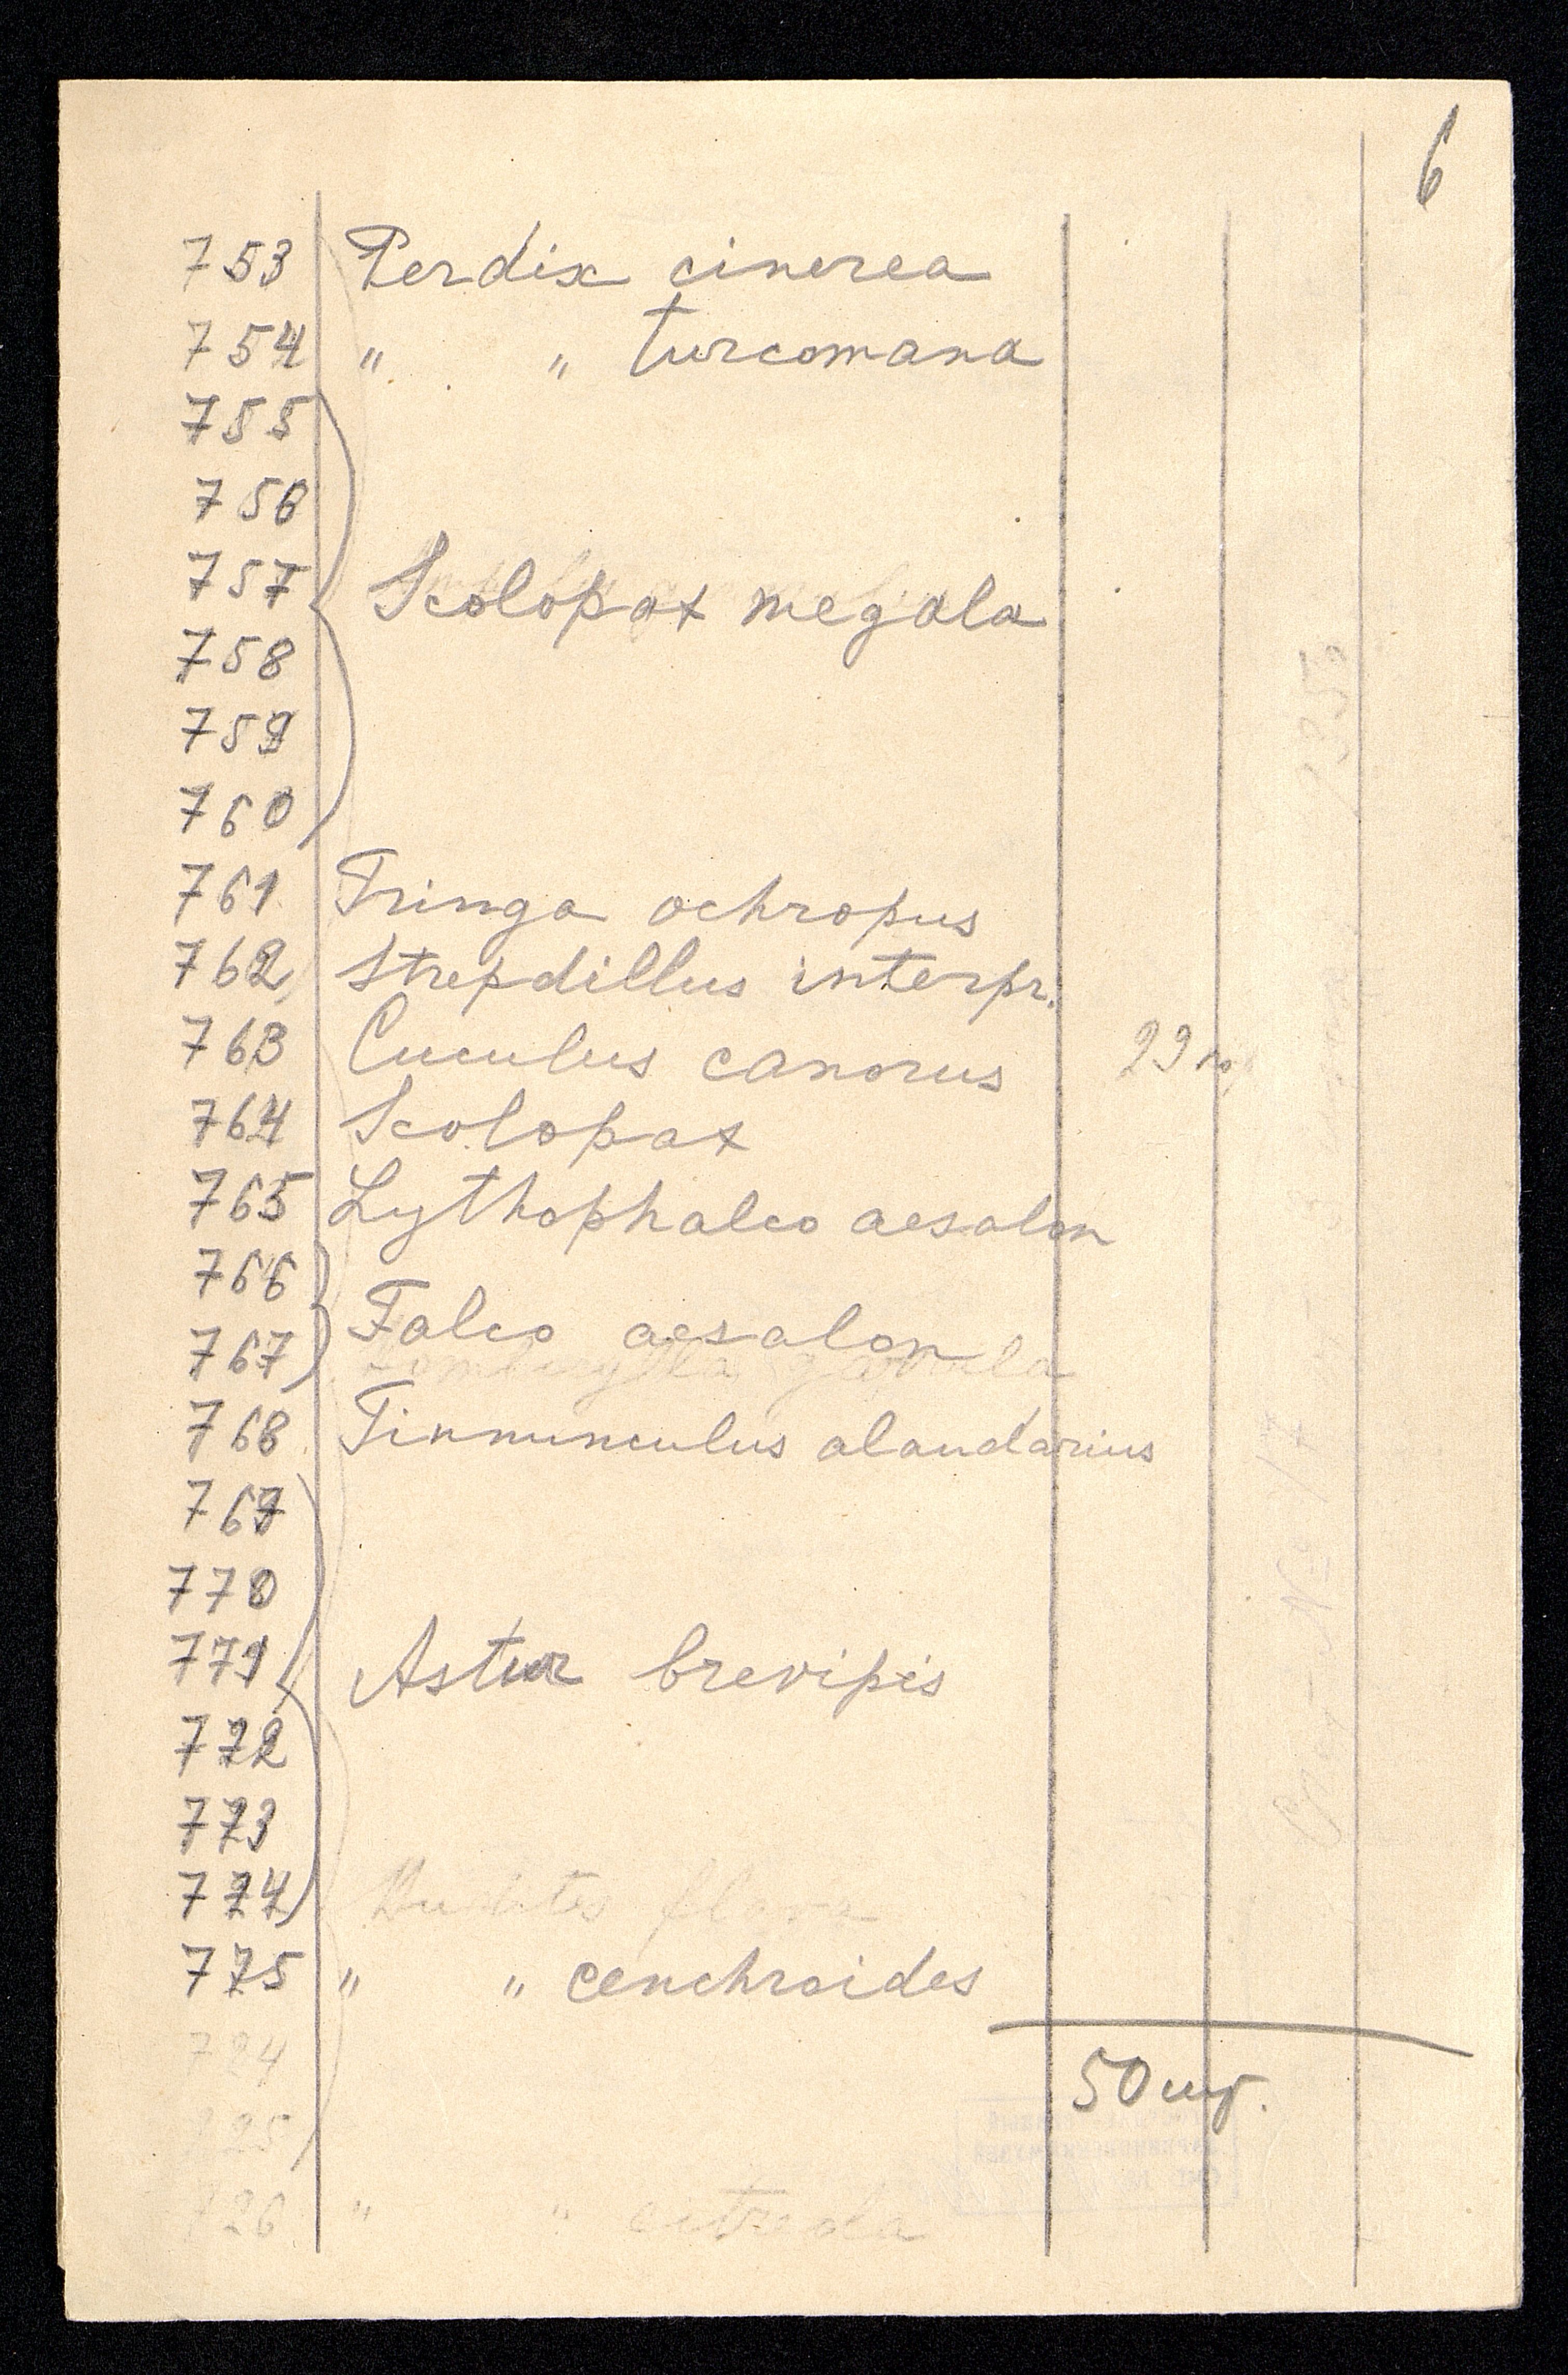 6
753 Perdix cinerea
754 " " turcomana
755
756
757 Scolopax megala
758
759
760
761 Tringa ochropus
762 Strepdillus interpr.
763 Cuculus canorus
764 Scolopax
765 Lythophalco aesalon
766
767 Falco aesalon
768 Tinnunculus alaudarius
769
770
771 Astur brevipis
772
773
774
775 " " cenchroides
50 шт.
724
725
726 " " citreola